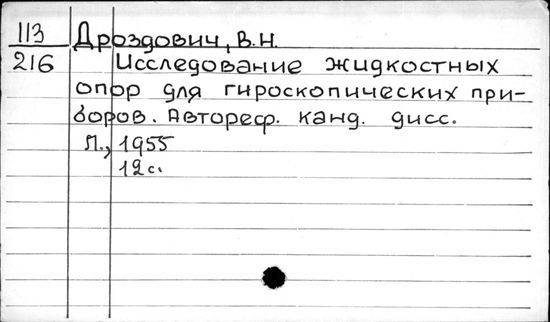 113 Дроздович, В.Н.
216 Исследование жидкостных
опор для гироскопических при-
боров. Автореф. канд. дисс.
Л., 1955
12с.